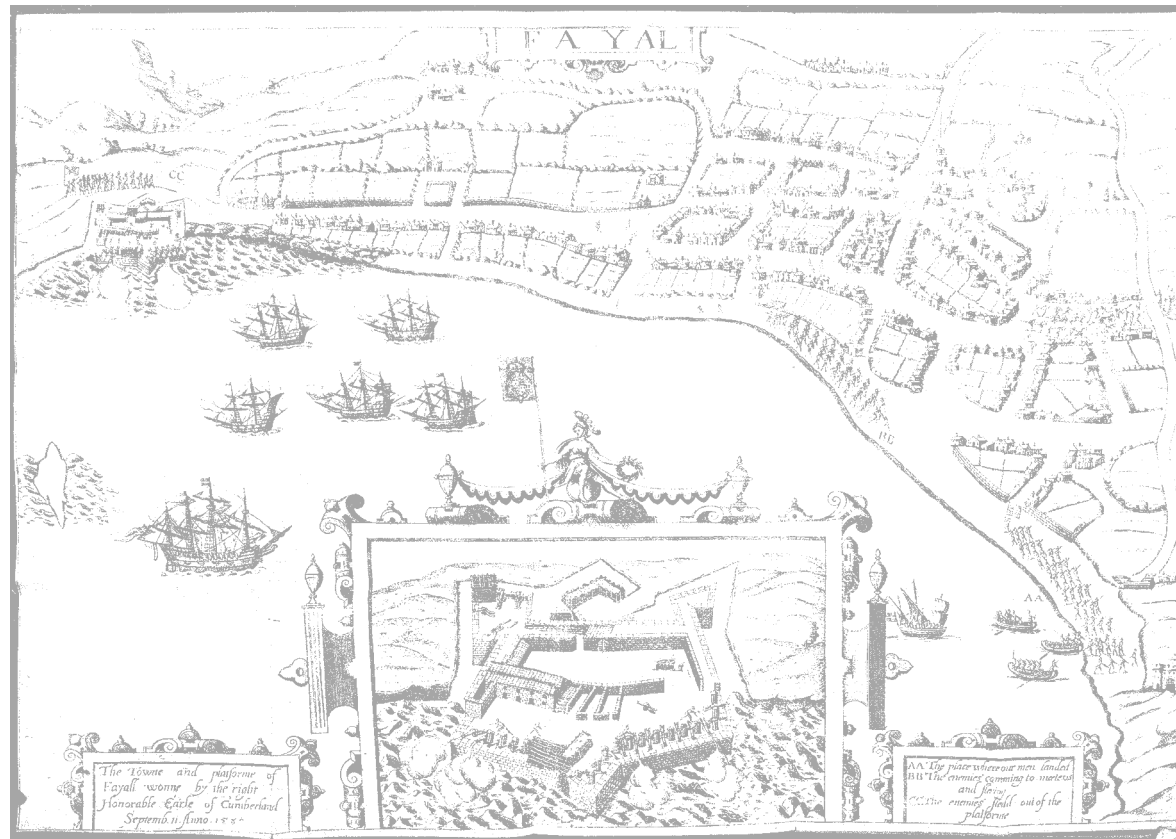 FAYAL
CC
BB
AA
The Towne and platforme of
Fayall wonne by the right
Honorable Earle of Cumberland
Septemb. 11. Anno. 15
AA The place where our men landed
BB The enemies comming to meete us
and flying
CC The enemies out of the
platforme